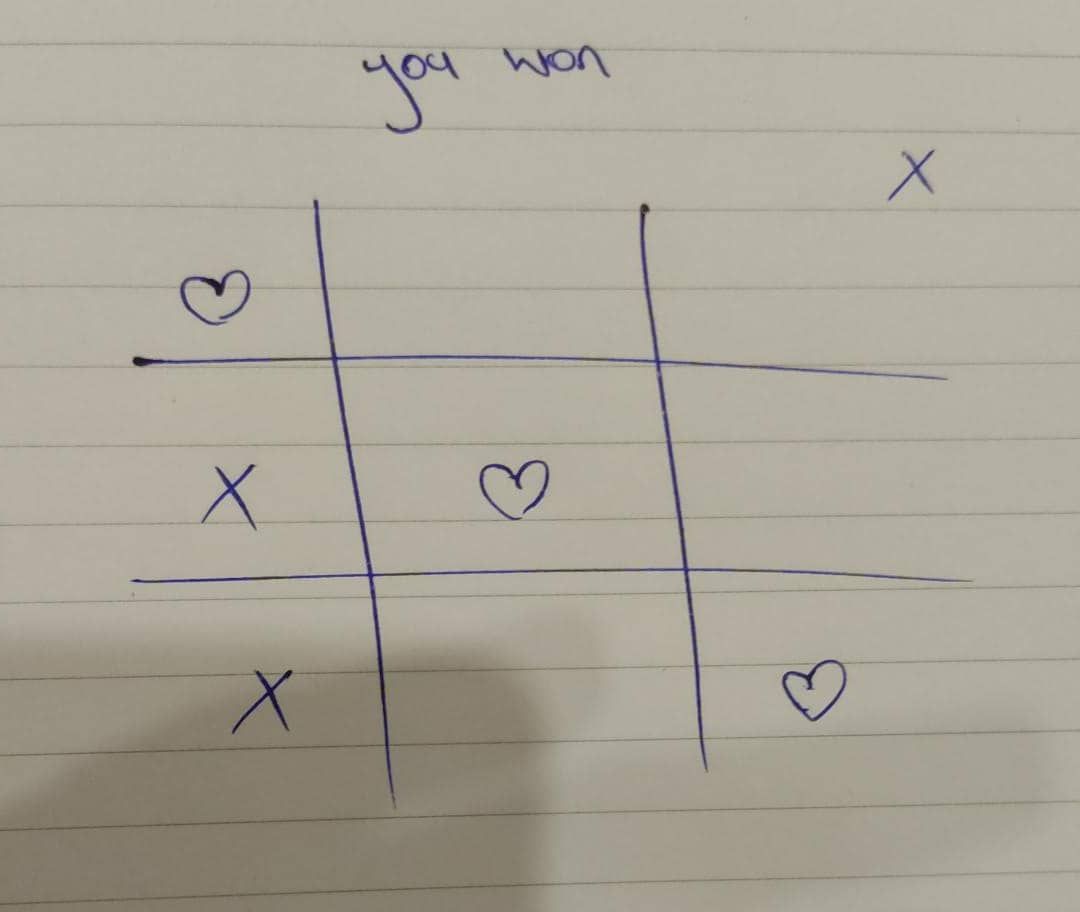 you won
X
X
X